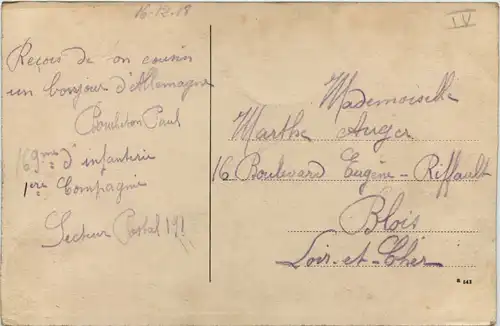 16-12-18
IV
Reçois de on cousin
un bonjour d'Allemagne
Paul
169me d'infanterie
1ère Compagnie
Secteur Postal 191
Mademoiselle
Marthe Auger
16 Boulevard Eugène-Riffault
Blois
Loir-et-Cher
G 143